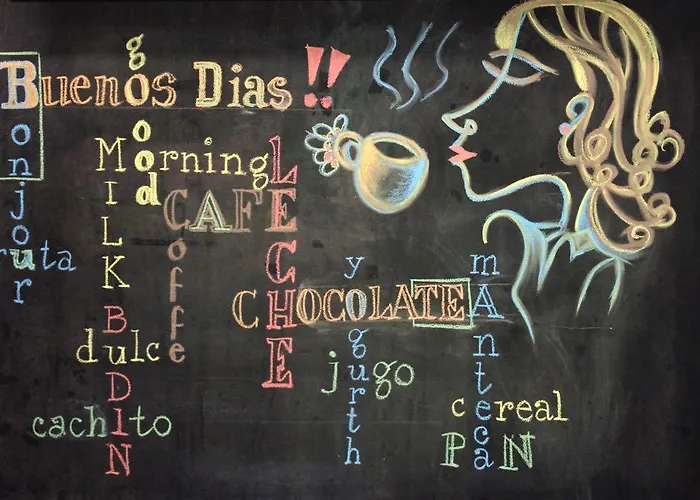 Buenos Dias !!
good
Bonjour
Morning
MILK
CAFE
Coffee
LECHE
ruta
CHOCOLATE
yogurth
mAnteca
BUDIN
dulce
jugo
cachito
cereal
PaN